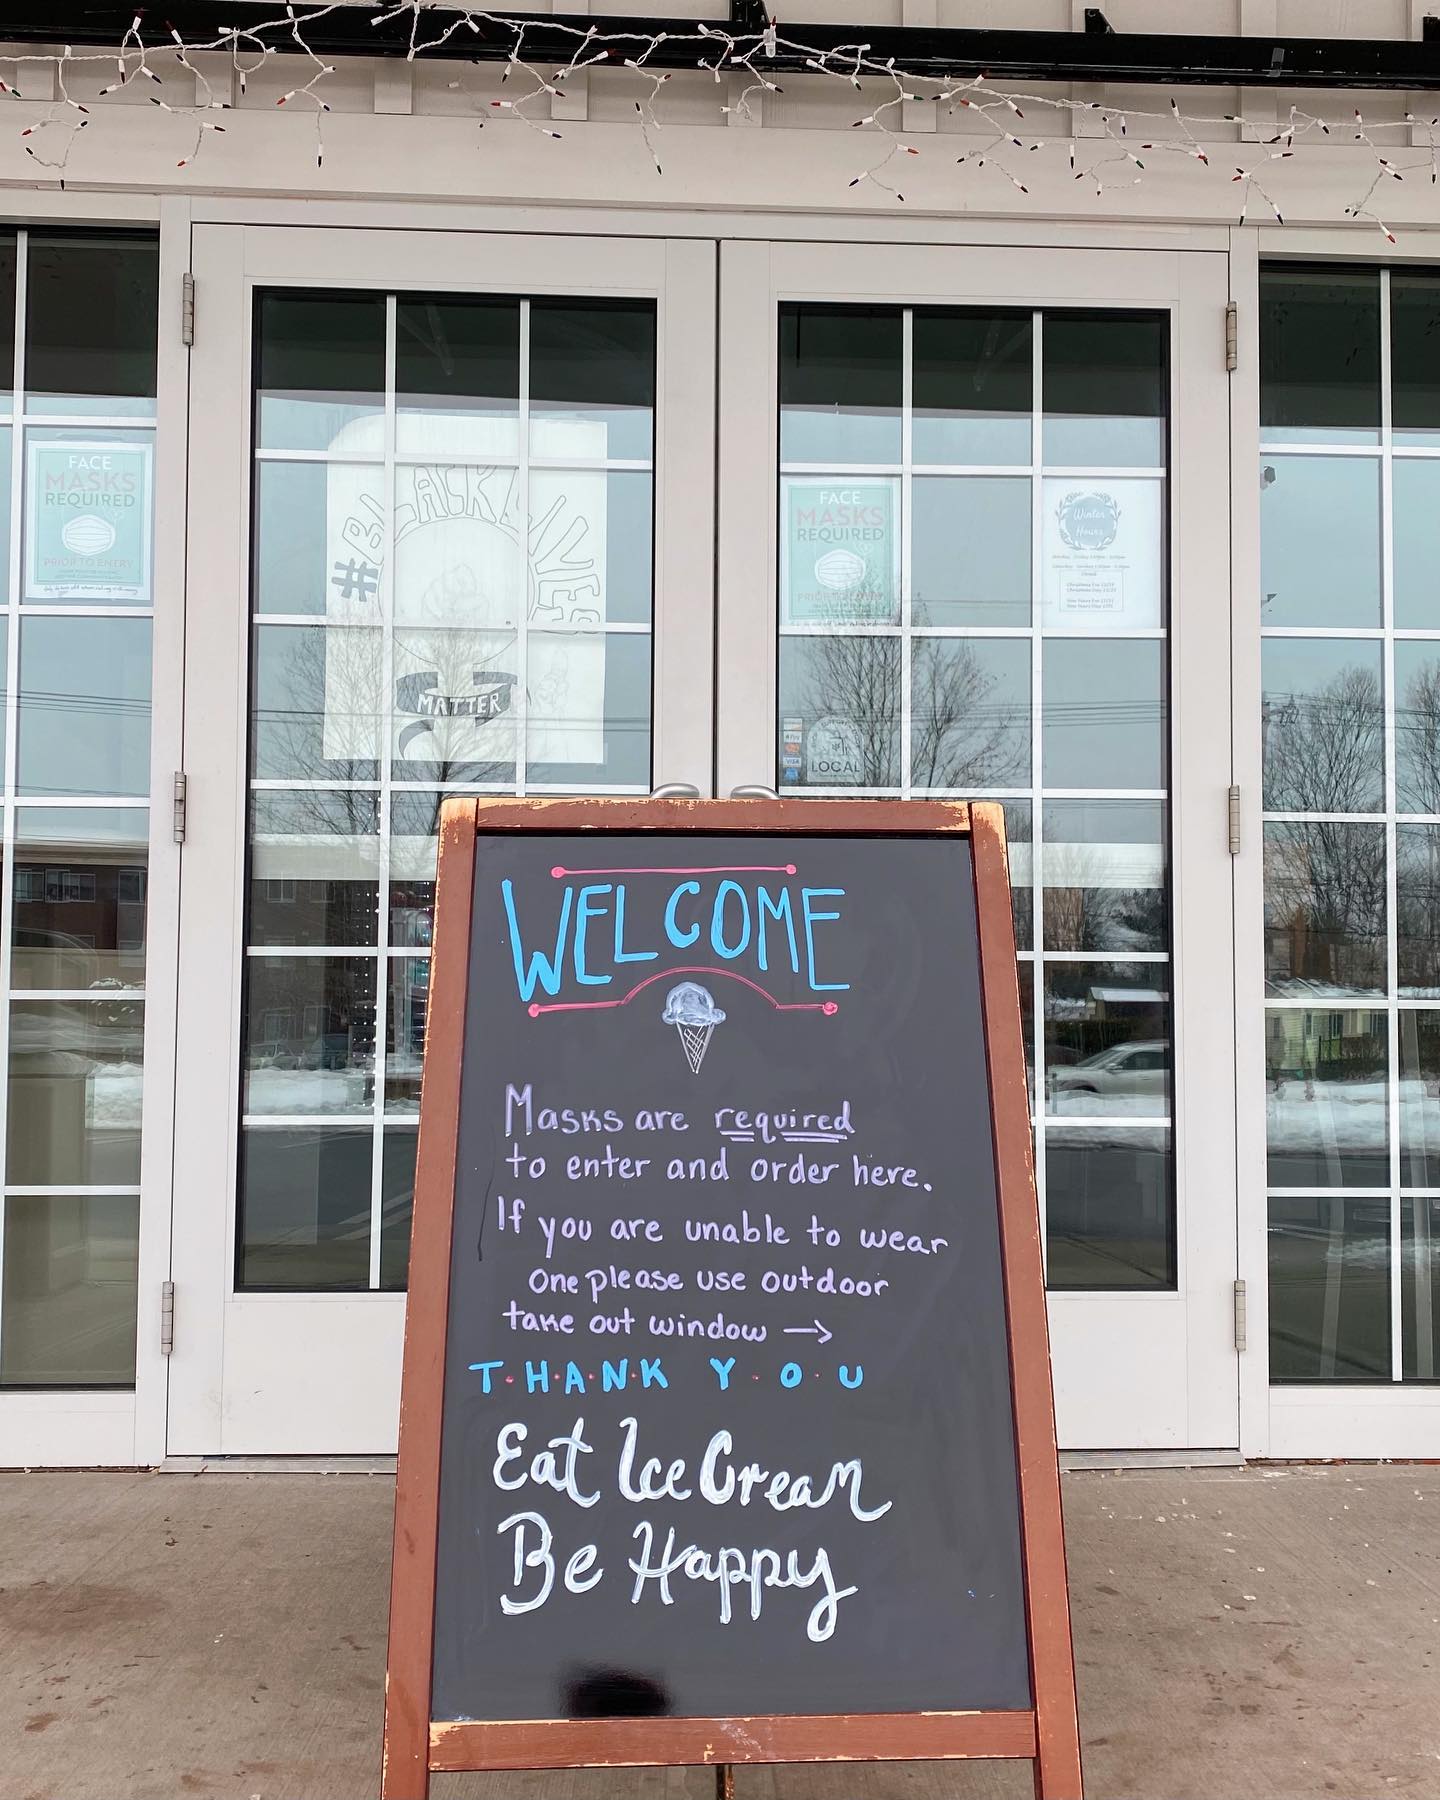 FACE
MASKS
REQUIRED
PRIOR TO ENTRY
#BLACK LIVES
MATTER
FACE
MASKS
REQUIRED
PRIOR TO ENTRY
Winter
Hours
Pay
VISA
LOCAL
WELCOME
Masks are required
to enter and order here.
If you are unable to wear
one please use outdoor
take out window →
T·H·A·N·K Y·O·U
Eat Ice Cream
Be Happy